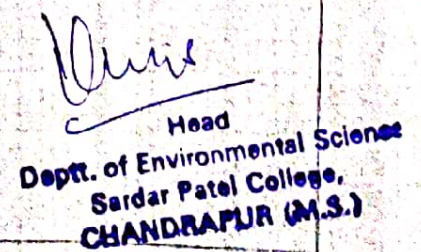 Head
Deptt. of Environmental Science
Sardar Patel College,
CHANDRAPUR (M.S.)